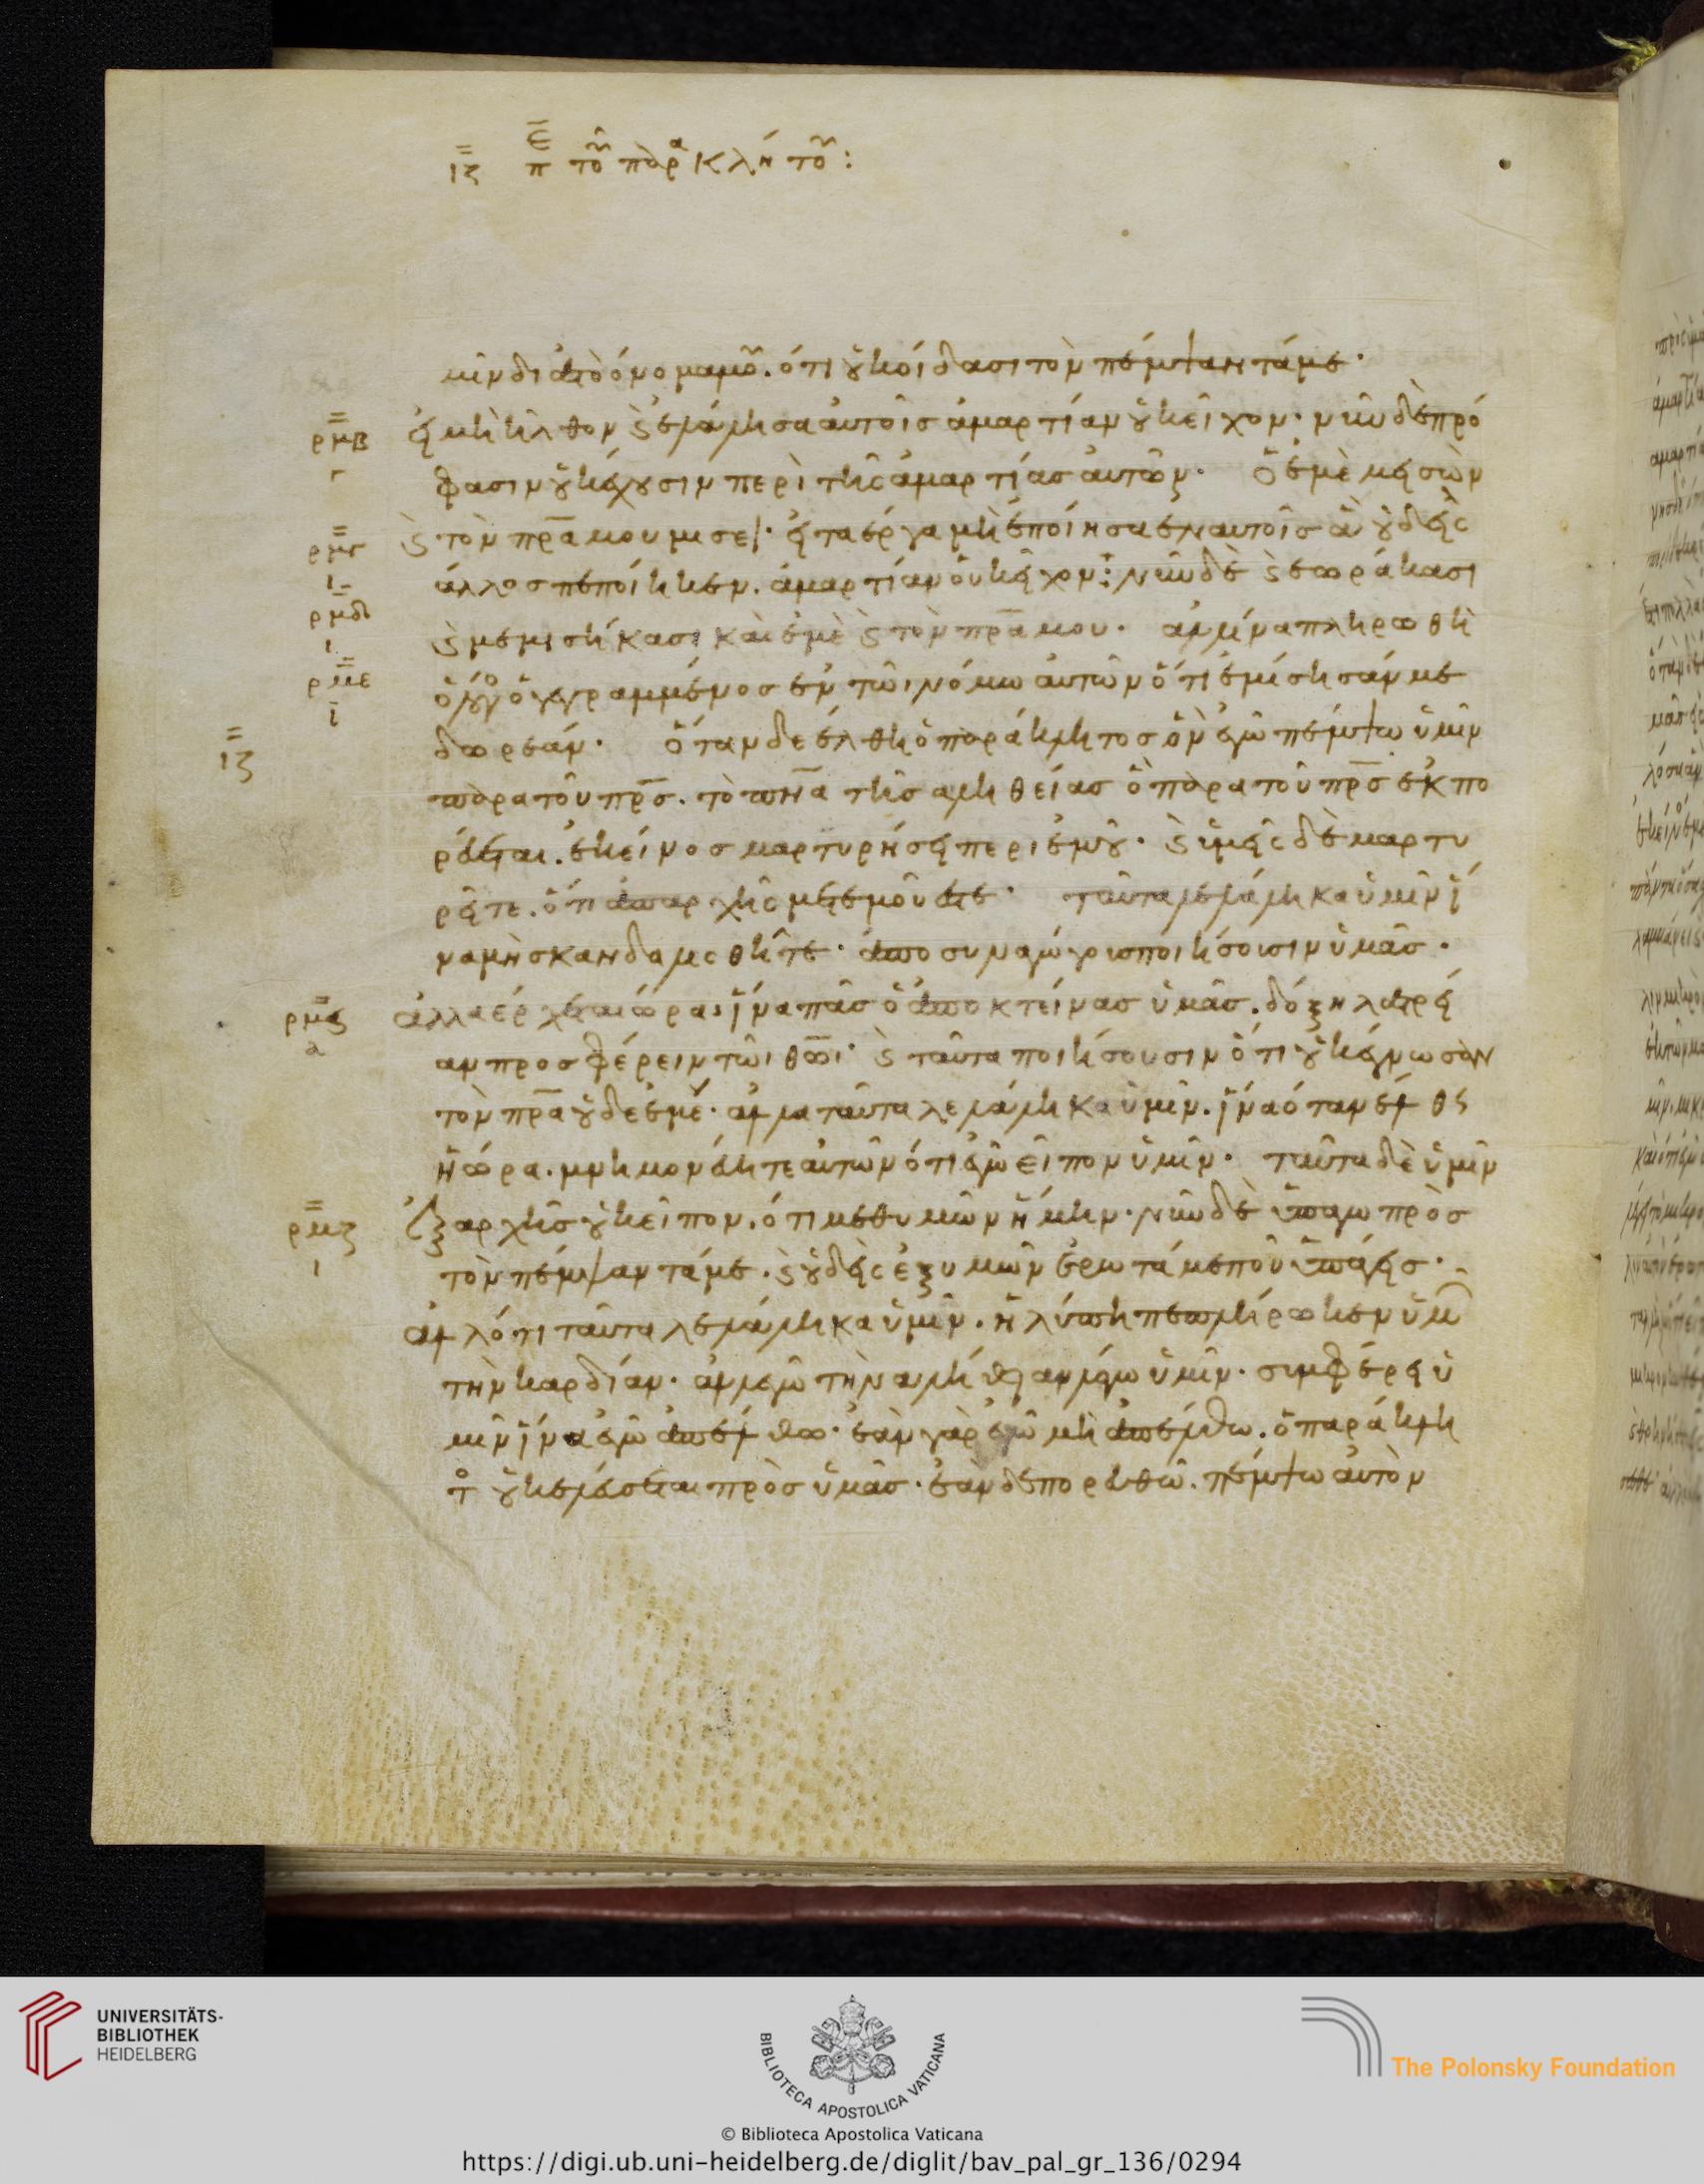 ιζ πε τοῦ παρακλήτου:
μῖν διὰ τὸ ὄνομα μου. ὅτι οὐκ οἴδασι τὸν πέμψαντά με.
ρμβ εἰ μὴ ἦλθον ϗ ἐλάλησα αὐτοῖσ ἁμαρτίαν οὐκ εἶχον. νῦν δὲ πρό
γ φασιν οὐκ ἔχουσιν περὶ τῆς ἁμαρτίασ αὐτῶν. Ὁ ἐμὲ μεισῶν
ρμγ ϗ τὸν πρα μου μισεῖ. εἰ τα έργα μὴ ἐποίησα ἐν αυτοῖσ ἃ οὐδεὶς
ι άλλοσ πεποίηκεν. ἁμαρτίαν οὐκ εἶχον: νῦν δὲ ϗ εωράκασι
ρμδ
ι ϗ μεμισήκασι και ἐμὲ ϗ τὸν πρα μου. ἀλλ' ίνα πληρωθῆ
ρμε
ι ὁ λόγο ὁ γεγραμμένοσ ἐν τῶι νόμω αὐτῶν ὅτι ἐμίσησάν με
ιζ δωρεάν. Ὅταν δε έλθη ὁ παράκλητοσ ὃν ἐγὼ πέμψω ὑμῖν
παρα τοῦ πρσ. τὸ πνα τῆσ αληθείασ ὃ παρα τοῦ πρσ ἐκπο
ρεύεται. ἐκεῖνοσ μαρτυρήσει περι ἐμοῦ. ϗ ὑμεῖς δὲ μαρτυ
ρεῖτε. ὅτι ἀπαρχῆς μετεμοῦ ἐστε. ταῦτα λελάληκα ὑμῖν ἵ
να μὴ σκανδαλισθῆτε. ἀποσυναγώγουσ ποιήσουσιν ὑμᾶσ.
ρμϛ ἀλλα έρχεται ώρα. ἵνα πᾶσ ὁ ἀποκτείνασ ὑμᾶσ. δόξη λατρεί
α αν προσφέρειν τῶι θωι. ϗ ταῦτα ποιήσουσιν ὅτι οὐκ έγνωσαν
τὸν πρα οὐδε ἐμέ. ἀλλα ταῦτα λελάληκα ὑμῖν. ἵνα ὅταν έλθη
ἡ ώρα. μνημονεύητε αὐτῶν ὅτι ἐγὼ εἶπον ὑμῖν. ταῦτα δὲ ὑμῖν
ρμζ ἐξαρχῆσ οὐκ εἶπον. ὅτι μεθυμῶν ἤμην. νῦν δὲ ὑπάγω πρὸσ
ι τὸν πέμψαντά με. ϗ οὐδεὶς ἐξ υμῶν ἐρωτά με ποῦ ὑπάγεισ.
ἀλλ ότι ταῦτα λελάληκα ὑμῖν. ἡ λύπη πεπλήρωκεν ὑμῶ
τὴν καρδίαν. ἀλλ εγὼ τὴν αλήθειαν λέγω ὑμῖν. συμφέρει ὑ
μῖν ἵνα ἐγὼ ἀπέλθω. ἐὰν γὰρ ἐγὼ μὴ ἀπέλθω. ὁ παράκλη
το οὐκ ελεύσεται πρὸσ ὑμᾶσ. ἐὰν δὲ πορευθῶ. πέμψω αὐτὸν
UNIVERSITÄTS-
BIBLIOTHEK
HEIDELBERG
BIBLIOTECA APOSTOLICA VATICANA
The Polonsky Foundation
© Biblioteca Apostolica Vaticana
https://digi.ub.uni-heidelberg.de/diglit/bav_pal_gr_136/0294